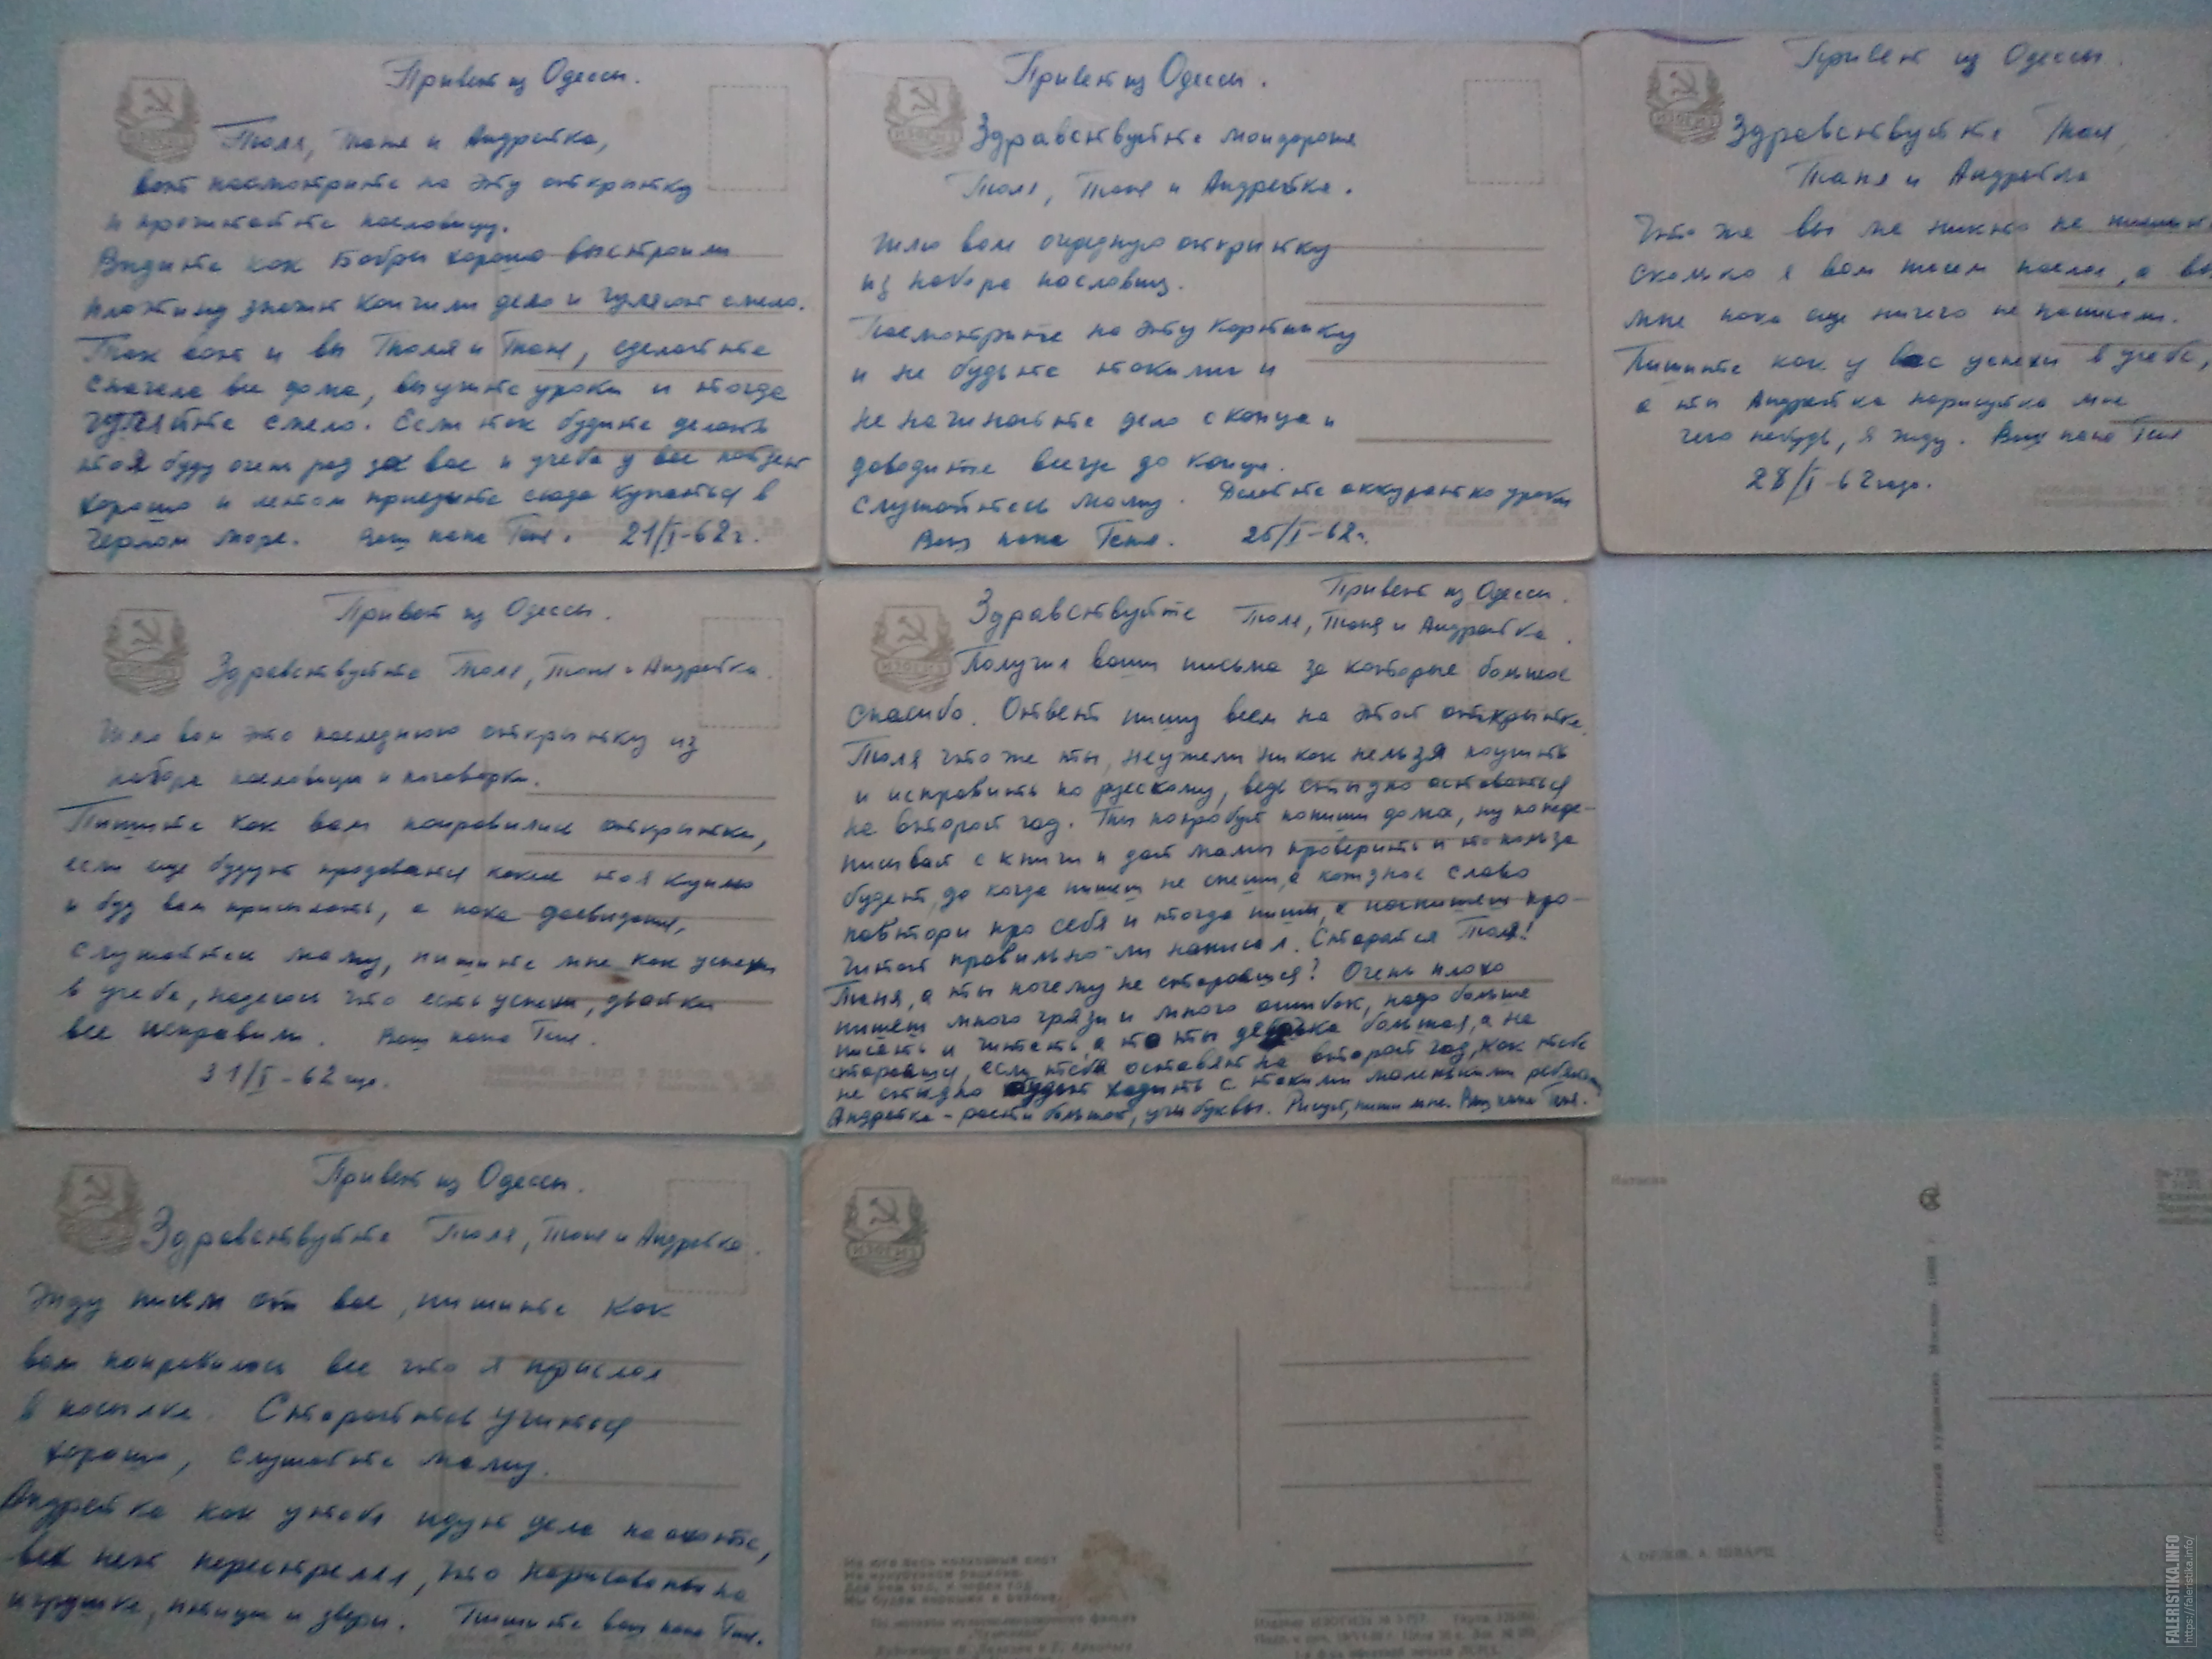 Привет из Одессы.
Толя, Таня и Андрейка,
вот посмотрите на эту открытку
и прочитайте пословицу.
Видите как Бобры хорошо выстроили
плотину значит кончили дело и гуляют смело.
Так вот и вы Толя и Таня, сделайте
сначала все дома, выучите уроки и тогда
гуляйте смело. Если так будите делать
то я буду очень рад за вас и учеба у вас пойдет
хорошо и летом приедите сюда купаться в
Черном море. Ваш папа Геня. 21/I-62г.
Привет из Одессы.
Здравствуйте мои дорогие
Толя, Таня и Андрейка.
Шлю вам очередную открытку
из набора пословиц.
Посмотрите на эту картинку
и не будьте такими и
не начинайте дело с конца и
доводите всегда до конца.
Слушайтесь маму. Делайте аккуратно уроки
Ваш папа Геня. 25/I-62г.
Привет из Одессы.
Здравствуйте Толя,
Таня и Андрейка
Что же вы мне никто не
сколько я вам писем послал, а вы
мне пока еще ничего не написали.
Пишите как у вас успехи в учебе,
а ты Андрейка нарисуйка мне
чего нибудь, я жду. Ваш папа Геня
28/I-62 года.
Привет из Одессы.
Здравствуйте Толя, Таня и Андрейка.
Шлю вам это последнюю открытку из
набора пословицы и поговорки.
Пишите как вам понравились открытки,
если еще будут продаваться какие то я куплю
и буду вам присылать, а пока досвидания,
слушайтесь маму, пишите мне как успехи
в учебе, надеюсь что есть успехи, двойки
все исправили. Ваш папа Геня.
31/I-62 года.
Привет из Одессы.
Здравствуйте Толя, Таня и Андрейка.
Получил ваши письма за которые большое
спасибо. Ответ пишу всем на этой открытке.
Толя что же ты, неужели никак нельзя поучить
и исправить по русскому, ведь стыдно оставаться
на второй год. Ты попробуй попиши дома, ну попере-
писывай с книги и дай маме проверить и то польза
будет, да когда пишеш не спеши, а каждное слово
повтори про себя и тогда пиши, а попишеш про-
читай правильно-ли написал. Старайся Толя!
Таня, а ты почему не стараешся? Очень плохо
пишеш много грязи и много ошибок, надо больше
писать и читать, а то ты девочка большая, а не
стараешся, если тебя оставят на второй год, как тебе
не стыдно будет ходить с такими маленькими ребятами
Андрейка - расти большой, учи буквы. Рисуй, пиши мне. Ваш папа Геня.
Привет из Одессы.
Здравствуйте Толя, Таня и Андрейка.
Жду писем от вас, пишите как
вам понравилось все что я прислал
в посылке. Старайтесь учиться
хорошо, слушайте маму.
Андрейка как у тебя идут дела на охоте,
всех перестрелял, что нарисованы на
игрушке, птицы и звери. Пишите ваш папа Геня.
ИЗОГИЗ
На юга весь
Мы будем
Наташа
«Советский художник» Москва
А. ОРЛОВ, А. ШВАРЦ
FALERISTIKA.INFO
https://faleristika.info/